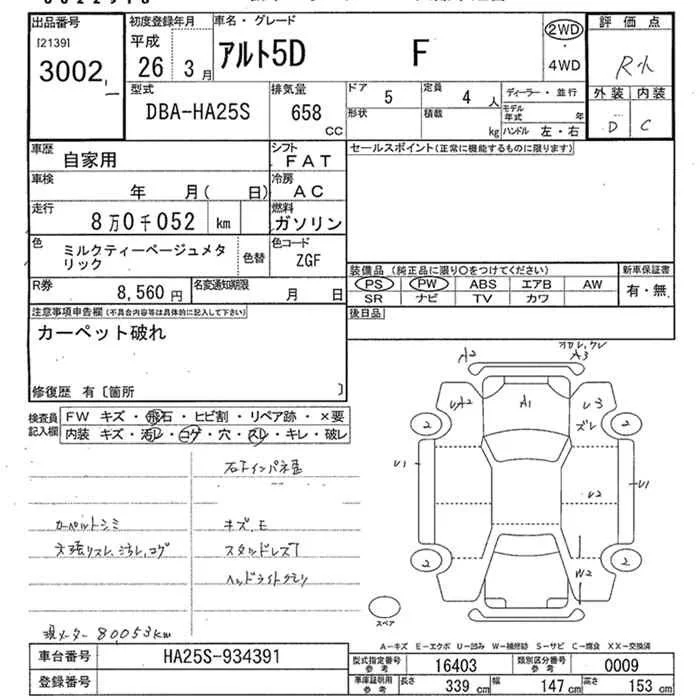 出品番号 初度登録年月 車名・グレード 評価点
[2139]
3002 平成 26 3月 アルト5D F 2WD・4WD R小
型式 排気量 ドア 定員 ディーラー・並行 外装 内装
DBA-HA25S 658 CC 5 4人 D C
形状 積載 kg モデル年式 年
ハンドル 左・右
車歴 自家用 シフト FAT セールスポイント(正常に機能するものに限ります)
車検 年 月( 日) 冷房 AC
走行 8万0千052 km 燃料 ガソリン
色 ミルクティーベージュメタリック 色替 色コード ZGF
装備品(純正品に限り○をつけてください) 新車保証書
PS PW ABS エアB AW 有・無
SR ナビ TV カワ
R券 8,560円 名変通知期限 月 日
後日品
注意事項申告欄(不具合内容等は具体的に記入して下さい)
カーペット破れ
修復歴 有〔箇所 〕
検査員記入欄 FW キズ・飛石・ヒビ割・リペア跡・×要
内装 キズ・汚レ・コゲ・穴・スレ・キレ・破レ
A2 A3
UA2 A1 U3
ズレ
2 2
U1 U2 U1
2 W2 2
スペア
カーペットシミ キズ、E
スタッドレス7
ヘッドライトクモリ
現メーター 80053km
A-キズ E-エクボ U-凹み W-補修跡 S-サビ C-腐食 XX-交換済
車台番号 HA25S-934391 型式指定番号 参考 16403 類別区分番号 参考 0009
登録番号 車庫証明用 参考 長さ 339cm 幅 147cm 高さ 153cm